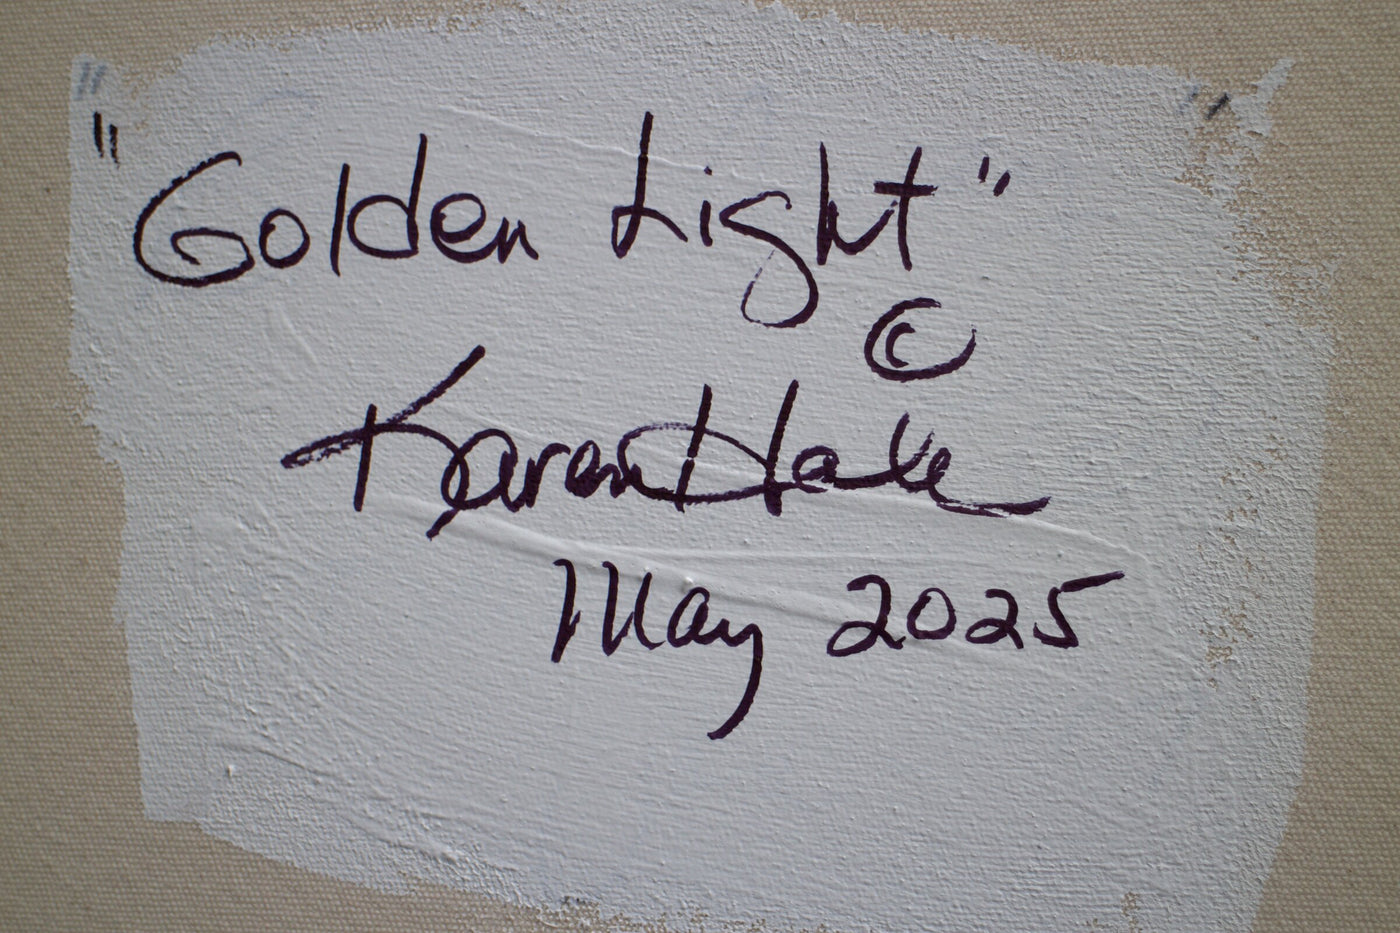 "Golden Light"
©
Karen Hale
May 2025